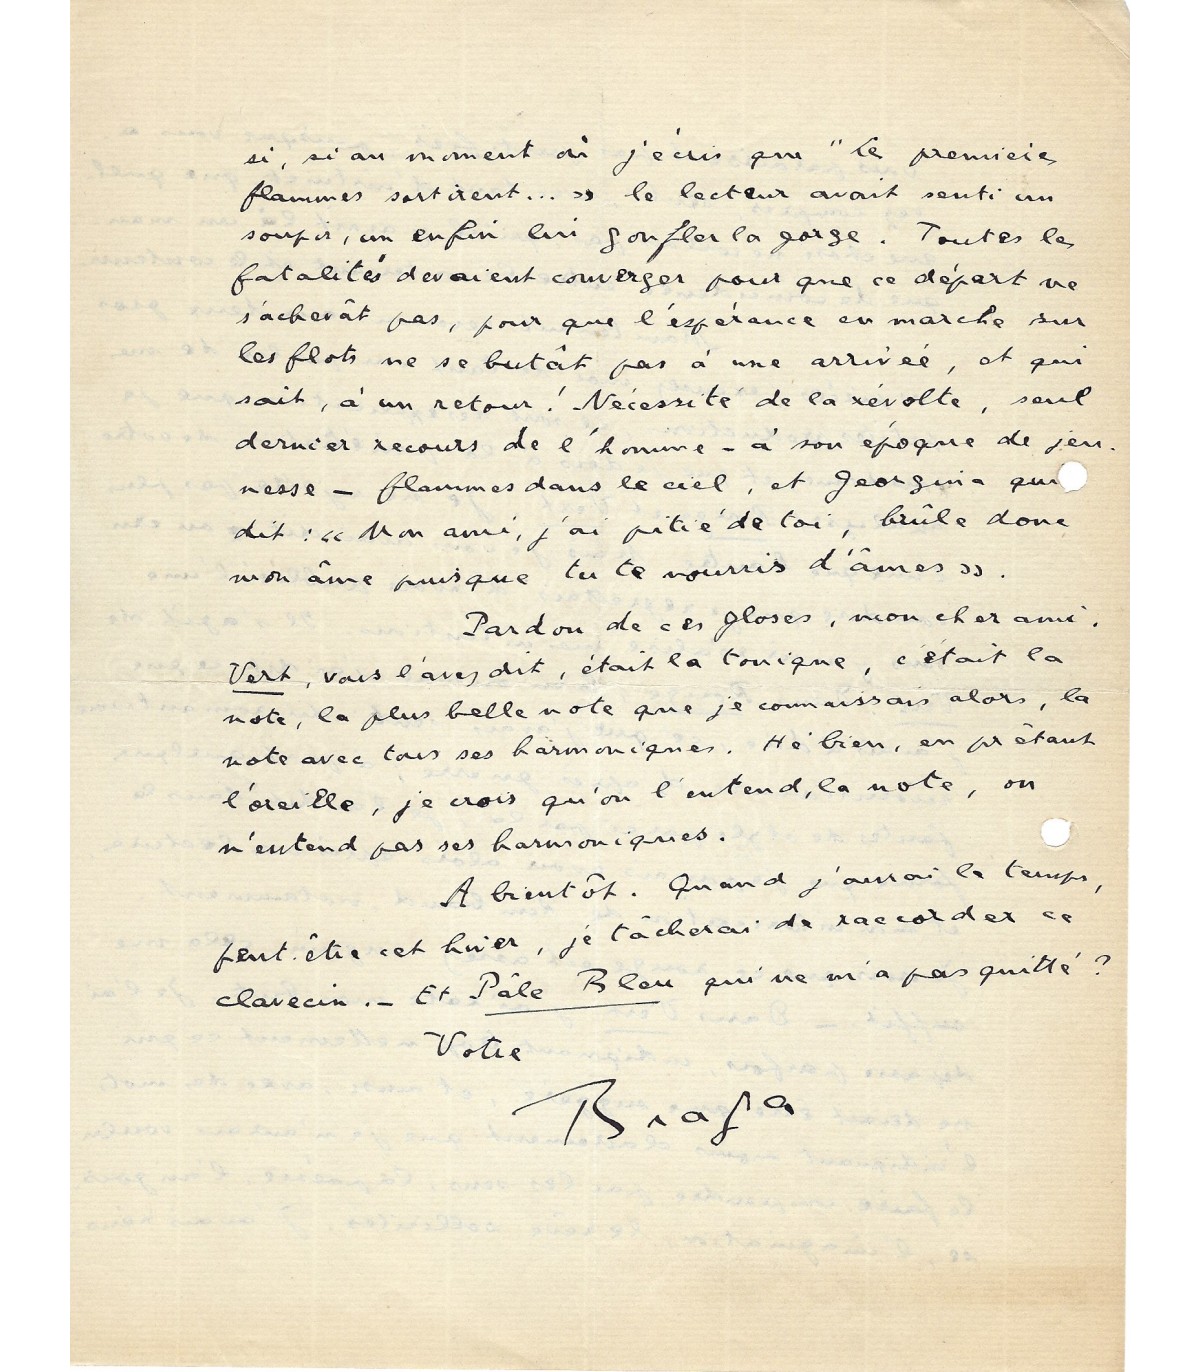 si, si au moment où j'écris que "les premières
flammes sortirent... » le lecteur avait senti un
soupir, un enfin lui gonfler la gorge. Toutes les
fatalités devaient converger pour que ce départ ne
s'achevât pas, pour que l'espérance en marche sur
les flots ne se butât pas à une arrivée, et qui
sait, à un retour ! Nécessité de la révolte, seul
dernier recours de l'homme - à son époque de jeu-
nesse - flammes dans le ciel, et Georgina qui
dit : « Mon ami, j'ai pitié de toi, brûle donc
mon âme puisque tu te nourris d'âmes ».
Pardon de ces gloses, mon cher ami.
Vert, vous l'avez dit, était la tonique, c'était la
note, la plus belle note que je connaissais alors, la
note avec tous ses harmoniques. Hé bien, en prêtant
l'oreille, je crois qu'on l'entend, la note, on
n'entend pas ses harmoniques.
A bientôt. Quand j'aurai le temps,
peut-être cet hiver, je tâcherai de raccorder ce
clavecin. - Et Pâle Bleu qui ne m'a pas quitté ?
Votre
Braga